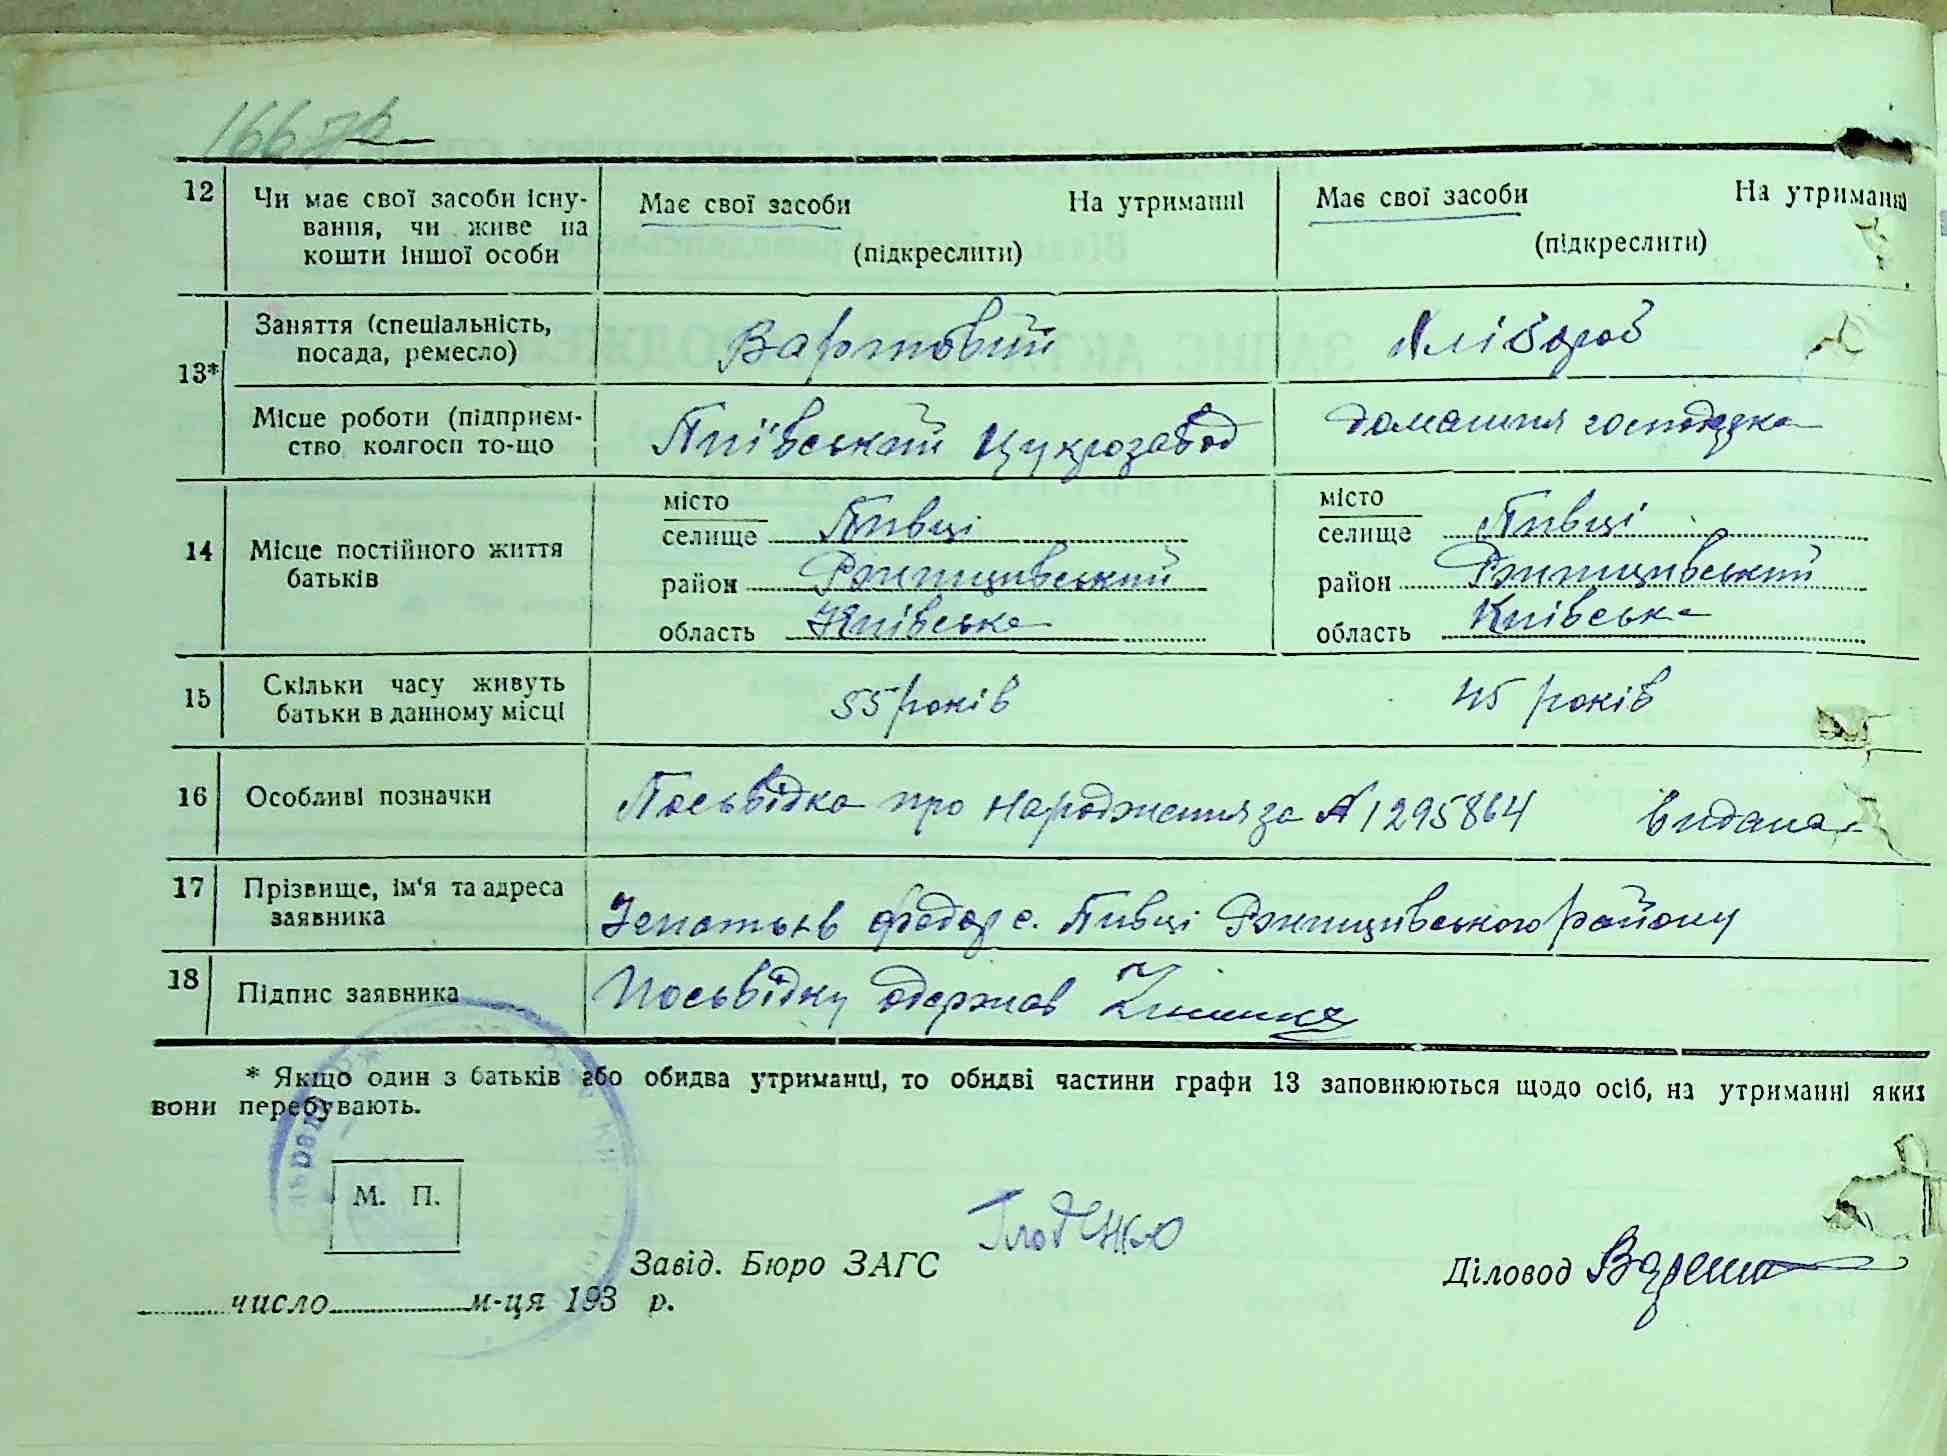 166 зв
12 Чи має свої засоби існу- Має свої засоби На утриманні Має свої засоби На утриманні
вання, чи живе на
кошти іншої особи (підкреслити) (підкреслити)
13* Заняття (спеціальність, Вартовий Хлібороб
посада, ремесло)
Місце роботи (підприєм- Пиївський Цукрозавод домашня господарка
ство колгосп то-що
14 Місце постійного життя місто місто
батьків селище Пивці селище Пивці
район Ржищивський район Ржищивський
область Київська область Київська
15 Скільки часу живуть 55 років 45 років
батьки в данному місці
16 Особливі позначки Посьвідка про народження за № 1295864 видана
17 Прізвище, ім'я та адреса федор с. Пивці Ржищивського району
заявника
18 Підпис заявника Посьвідку одержав
* Якщо один з батьків або обидва утриманці, то обидві частини графи 13 заповнюються щодо осіб, на утриманні яких
вони перебувають.
М. П.
Завід. Бюро ЗАГС Діловод
число м-ця 193 р.